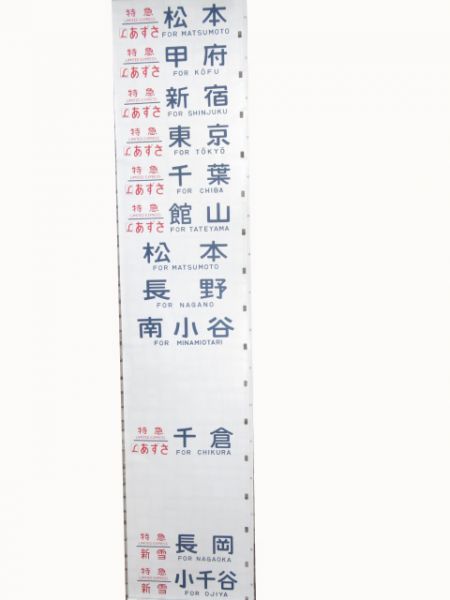 特急 松本
LIMITED EXPRESS
あずさ FOR MATSUMOTO
特急 甲府
LIMITED EXPRESS
あずさ FOR KŌFU
特急 新宿
LIMITED EXPRESS
あずさ FOR SHINJUKU
特急 東京
LIMITED EXPRESS
あずさ FOR TŌKYŌ
特急 千葉
LIMITED EXPRESS
あずさ FOR CHIBA
特急 館山
LIMITED EXPRESS
あずさ FOR TATEYAMA
松本
FOR MATSUMOTO
長野
FOR NAGANO
南小谷
FOR MINAMIOTARI
特急 千倉
LIMITED EXPRESS
あずさ FOR CHIKURA
特急 長岡
LIMITED EXPRESS
新雪 FOR NAGAOKA
特急 小千谷
LIMITED EXPRESS
新雪 FOR OJIYA